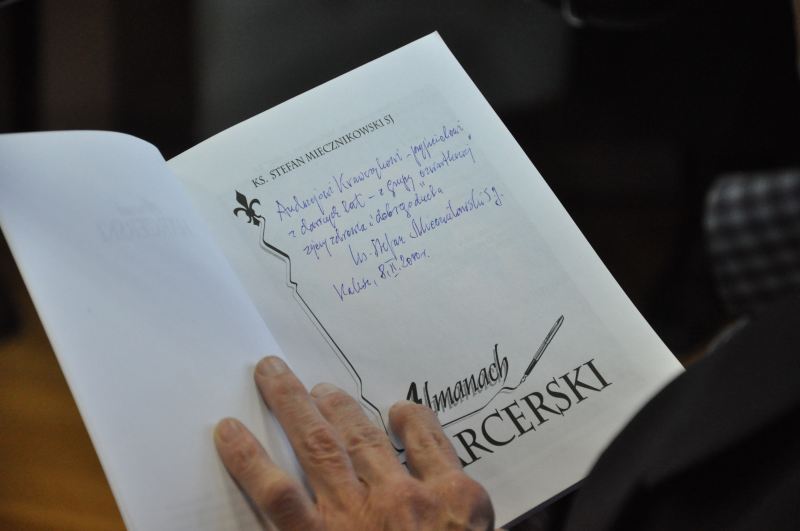 KS. STEFAN MIECZNIKOWSKI SJ
Andrzejowi Krawczykowi - przyjacielowi
z dawnych lat - z grupy czwartkowej
życzę zdrowia i dobrego ducha
ks. Stefan Miecznikowski SJ.
Kalisz, 8.II.2000r.
Almanach
ARCERSKI